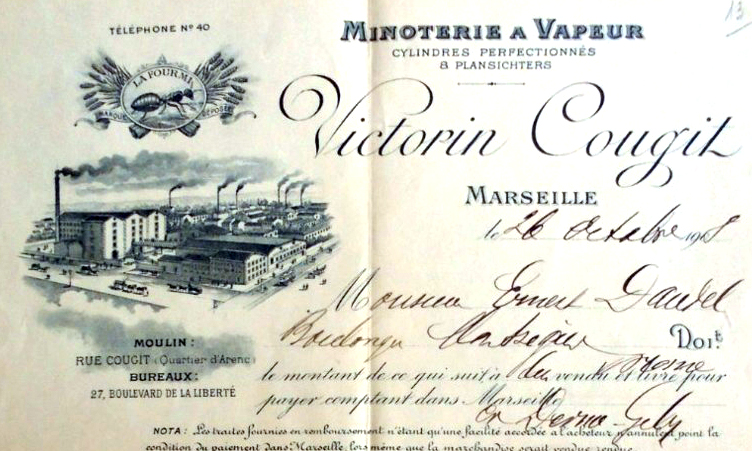 13
TÉLÉPHONE Nº 40
LA FOURMI
MARQUE DÉPOSÉE
MINOTERIE A VAPEUR
CYLINDRES PERFECTIONNÉS
& PLANSICHTERS
Victorin Cougit
MARSEILLE
le 26 Octobre 190
Monsieur Ernest Daudel
Boulanger
Doit
MOULIN:
RUE COUGIT (Quartier d'Arenc)
BUREAUX:
27, BOULEVARD DE LA LIBERTÉ
le montant de ce qui suit à lui vendu et livré pour
payer comptant dans Marseille
NOTA: Les traites fournies en remboursement n'étant qu'une facilité accordée à l'acheteur n'annulent point la
condition du paiement dans Marseille, lors même que la marchandise serait vendue rendue